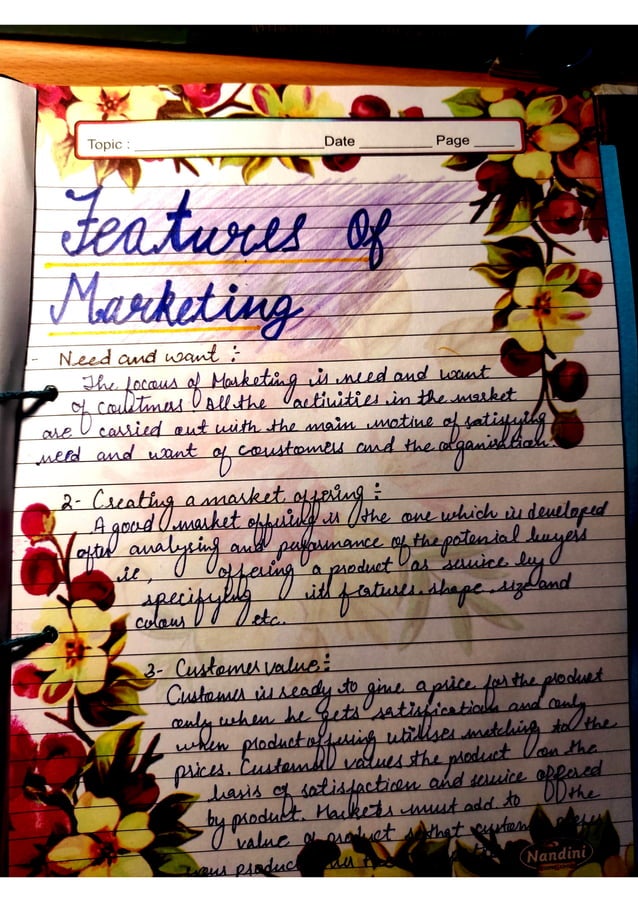 Topic : Date Page
Features Of
Marketing
- Need and want :-
The focous of Marketing is need and want
of coustmers. All the activities in the market
are carried out with the main motive of satisfying
need and want of coustomers and the organisation.
2- Creating a market offering :-
A good market offering is the one which is developed
after analysing and performance of the potential buyers
ie, offering a product as service by
specifying its features, shape, size and
colour etc.
3- Customer value :-
Customer is ready to give a price for the product
only when he gets satisfication and only
when product offering utilises matching to the
prices. Customer values the product on the
basis of satisfaction and service offered
by product. Markets must add to the
value of product so that
your product
Nandini